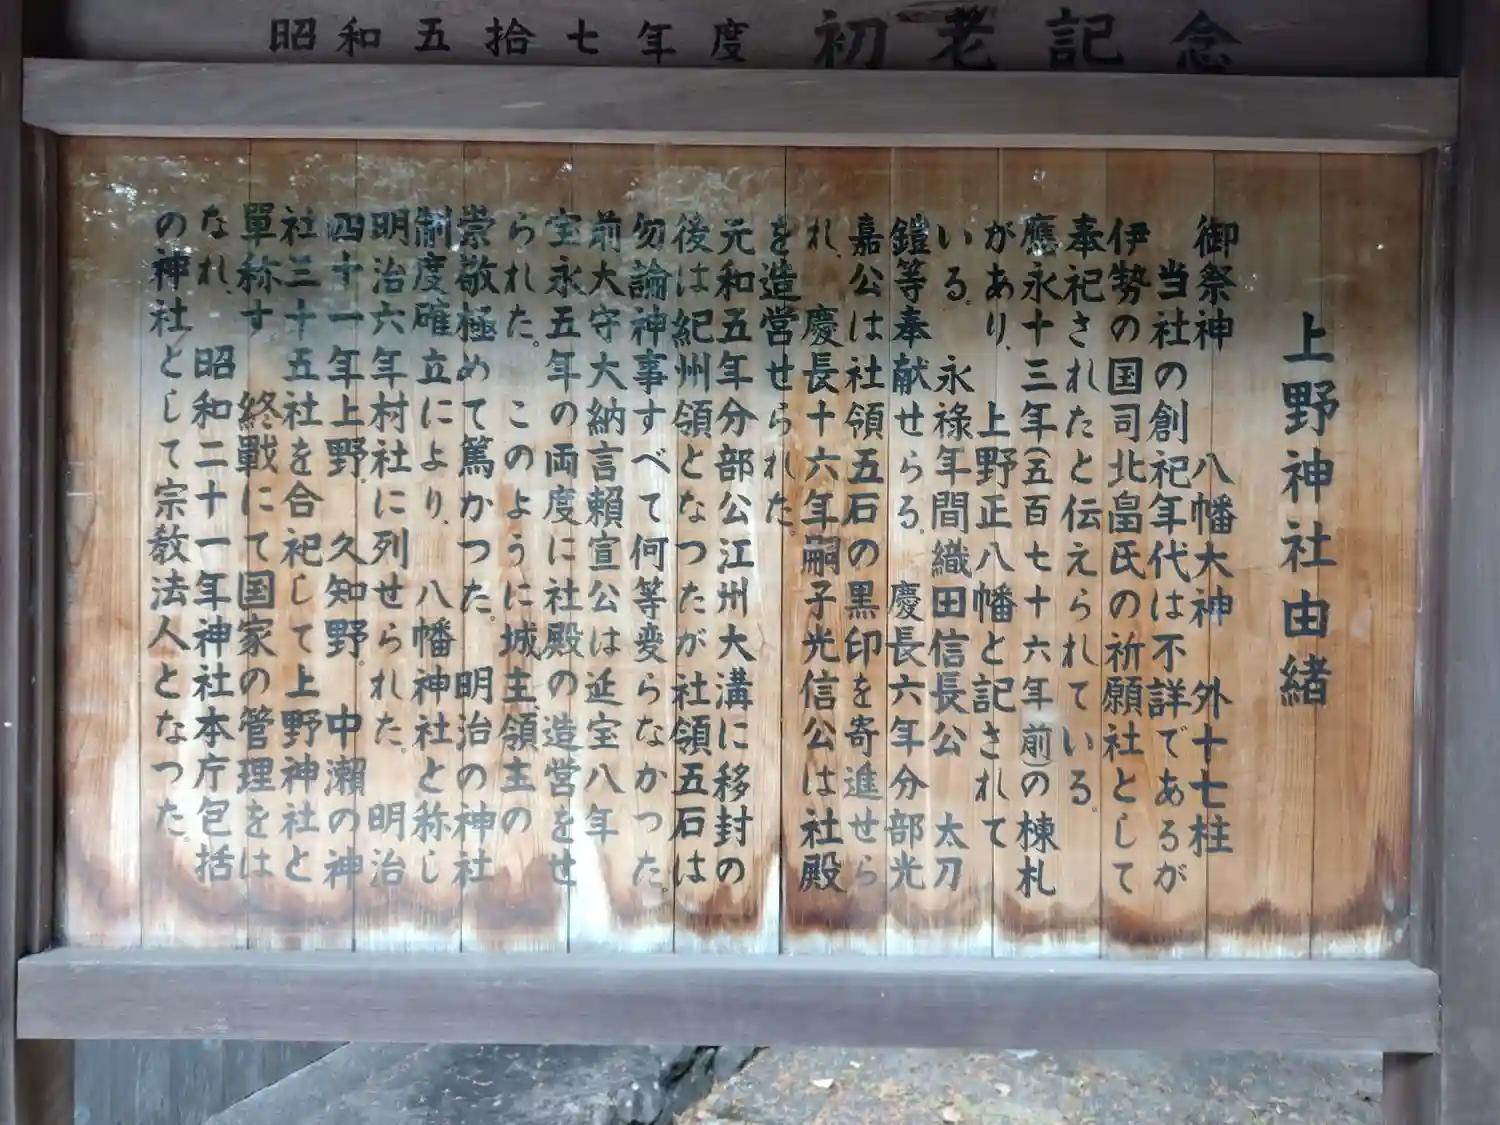 昭和五拾七年度 初老記念
上野神社由緒
御祭神 八幡大神 外十七柱
当社の創祀年代は不詳であるが
伊勢の国司北畠氏の祈願社として
奉祀されたと伝えられている。
應永十三年(五百七十六年前)の棟札
があり、上野正八幡と記されて
いる。 永禄年間織田信長公 太刀
鎧等奉献せらる。 慶長六年分部光
嘉公は社領五石の黒印を寄進せら
れ、慶長十六年嗣子光信公は社殿
を造営せられた。
元和五年分部公江州大溝に移封の
後は紀州領となつたが社領五石は
勿論神事すべて何等変らなかつた。
前大守大納言頼宣公は延宝八年
宝永五年の両度に社殿の造営をせ
られた。 このように城主、領主の
崇敬極めて篤かつた。 明治の神社
制度確立により、八幡神社と称し
明治六年村社に列せられた。 明治
四十一年上野、久知野。中瀬の神
社三十五社を合祀して上野神社と
單称す 終戰にて国家の管理をは
なれ、昭和二十一年神社本庁包括
の神社として宗教法人となつた。